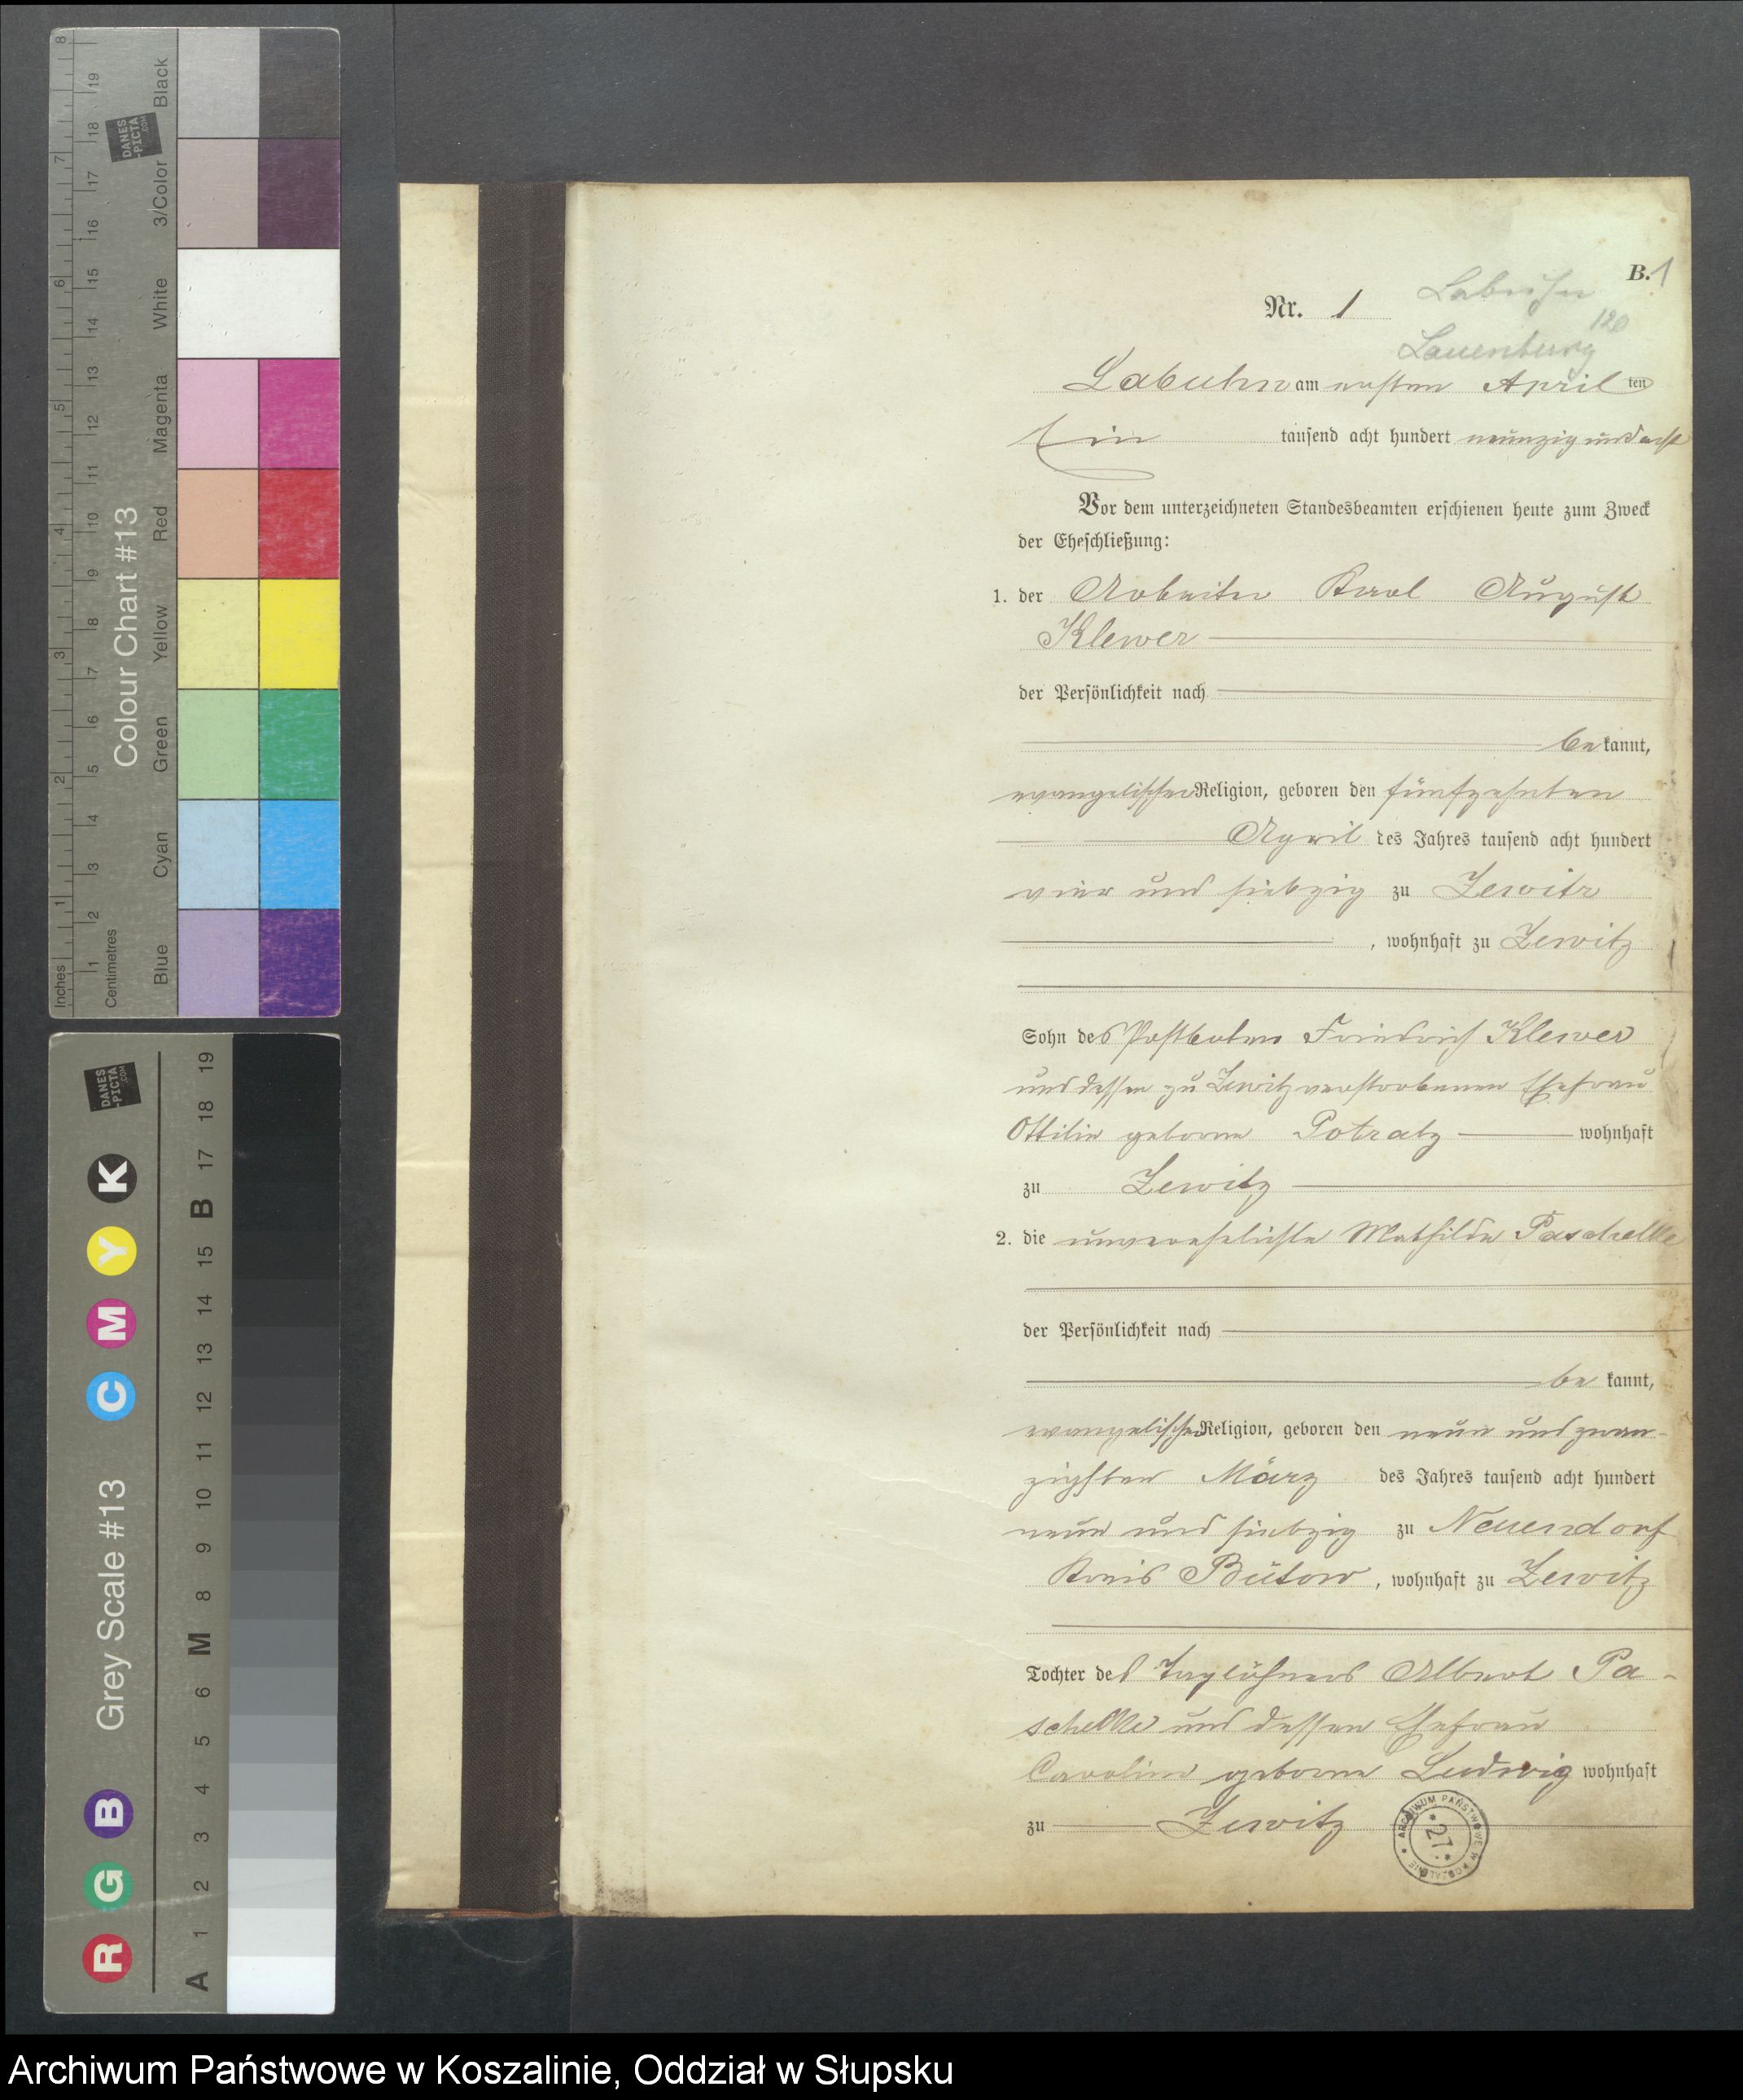 B. 1
Labuhn
Nr. 1
120
Lauenburg
Labuhn am ersten April ten
Ein tausend acht hundert neunzig und acht
Vor dem unterzeichneten Standesbeamten erschienen heute zum Zweck
der Eheschließung:
1. der Arbeiter Karl August
Klewer
der Persönlichkeit nach
be kannt,
evangelischer Religion, geboren den fünfzehnten
April des Jahres tausend acht hundert
vier und siebzig zu Zewitz
, wohnhaft zu Zewitz
Sohn des Postboten Friedrich Klewer
und dessen zu Zewitz verstorbenen Ehefrau
Ottilie geborne Potratz wohnhaft
zu Zewitz
2. die unverehelichte Mathilde Paschelke
der Persönlichkeit nach
be kannt,
evangelischer Religion, geboren den neun und zwan-
zigsten März des Jahres tausend acht hundert
neun und siebzig zu Neuendorf
Kreis Bütow, wohnhaft zu Zewitz
Tochter des Tagelöhners Albert Pa-
schelke und dessen Ehefrau
Caroline geborne Ludwig wohnhaft
zu Zewitz
ARCHIWUM PAŃSTWOWE W KOSZALINIE
27
Colour Chart #13
Black
3/Color
White
Magenta
Red
Yellow
Green
Cyan
Blue
Inches 1 2 3 4 5 6 7 8
Centimetres 1 2 3 4 5 6 7 8 9 10 11 12 13 14 15 16 17 18 19
DANES
-PICTA
.COM
Grey Scale #13
R G B C M Y K
A 1 2 3 4 5 6 M 8 9 10 11 12 13 14 15 B 17 18 19
DANES
-PICTA
.COM
Archiwum Państwowe w Koszalinie, Oddział w Słupsku